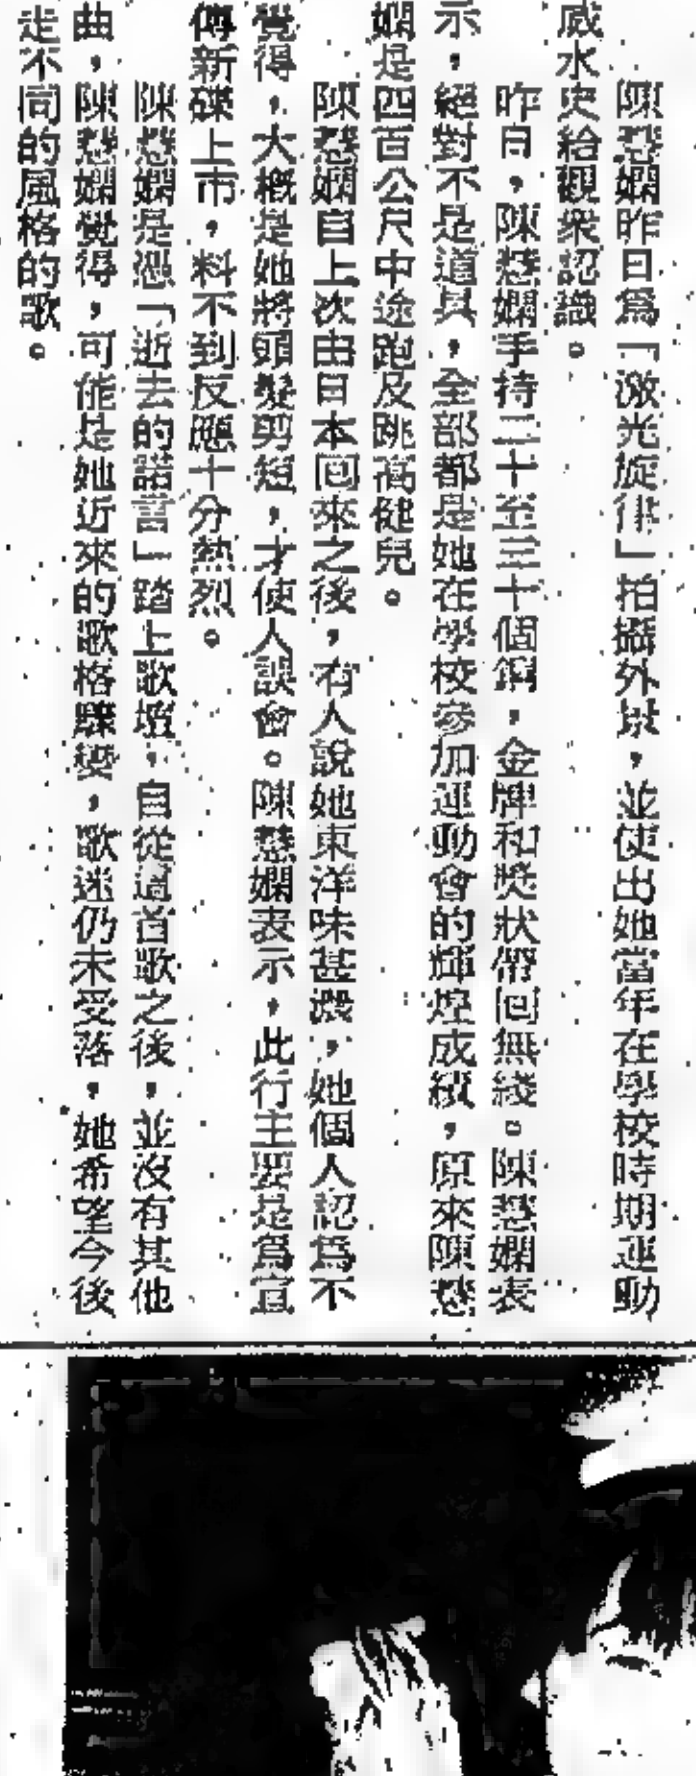 陳慧嫻昨日爲「激光旋律」拍攝外景，並使出她當年在學校時期運動
威水史給觀衆認識。
昨日，陳慧嫻手持二十至三十個銅，金牌和奬狀帶回無綫。陳慧嫻表
示，絕對不是道具，全部都是她在學校參加運動會的輝煌成績，原來陳慧
嫻是四百公尺中途跑及跳高健兒。
陳慧嫻自上次由日本回來之後，有人說她東洋味甚濃，她個人認爲不
覺得，大概是她將頭髮剪短，才使人誤會。陳慧嫻表示，此行主要是爲宣
傳新碟上市，料不到反應十分熱烈。
陳慧嫻是憑「逝去的諾言」踏上歌壇，自從這首歌之後，並沒有其他
曲，陳慧嫻覺得，可能是她近來的歌格驟變，歌迷仍未受落，她希望今後
走不同的風格的歌。